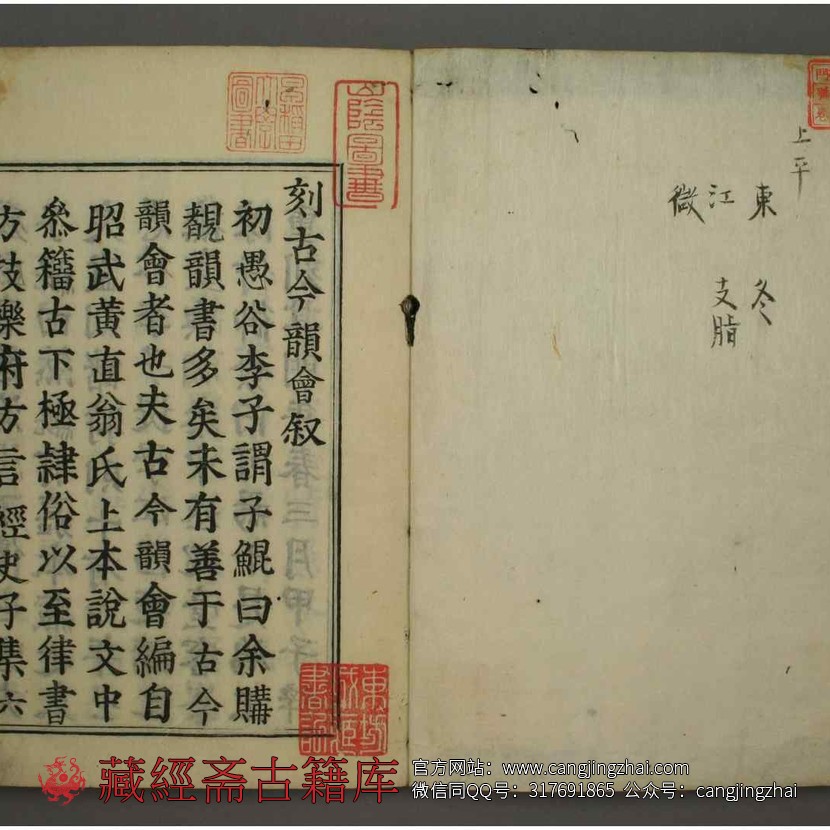 上平
東 冬
江 支脂
微
刻古今韻會叙
初愚谷李子謂子鯤曰余購
覩韻書多矣未有善于古今
韻會者也夫古今韻會編自
昭武黃直翁氏上本說文中
叅籀古下極隷俗以至律書
方技樂府方言經史子集六
陰圖書
圖書
藏經斋古籍库
官方网站：www.cangjingzhai.com
微信同QQ号：317691865 公众号：cangjingzhai